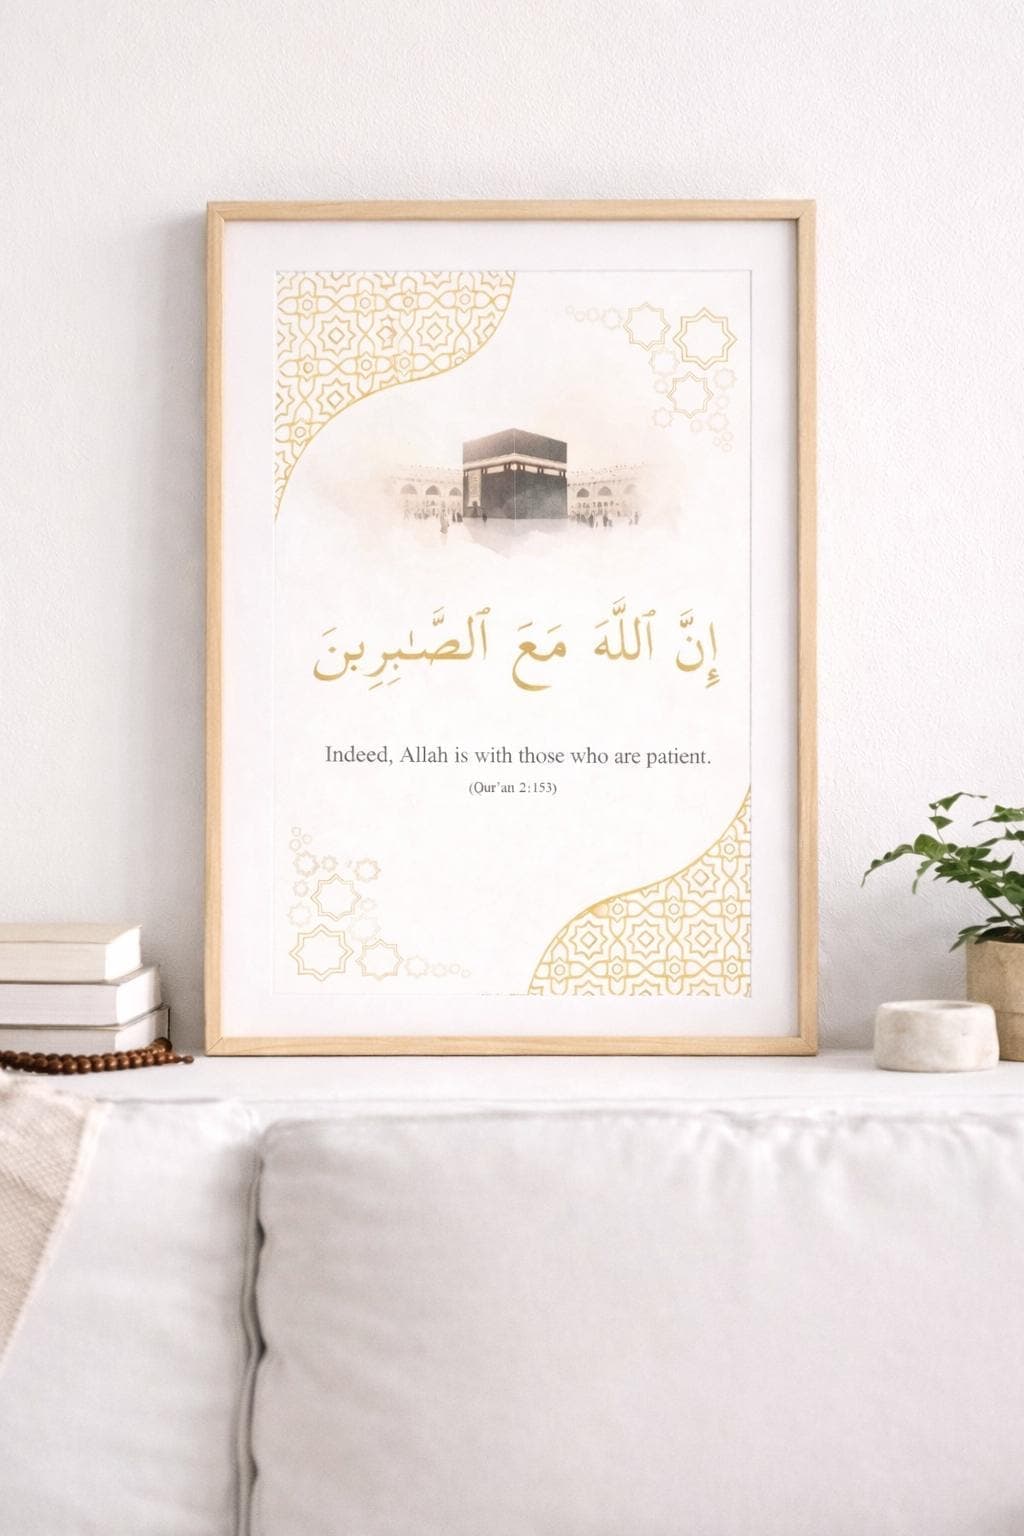 إِنَّ ٱللَّهَ مَعَ ٱلصَّـٰبِرِينَ
Indeed, Allah is with those who are patient.
(Qur'an 2:153)